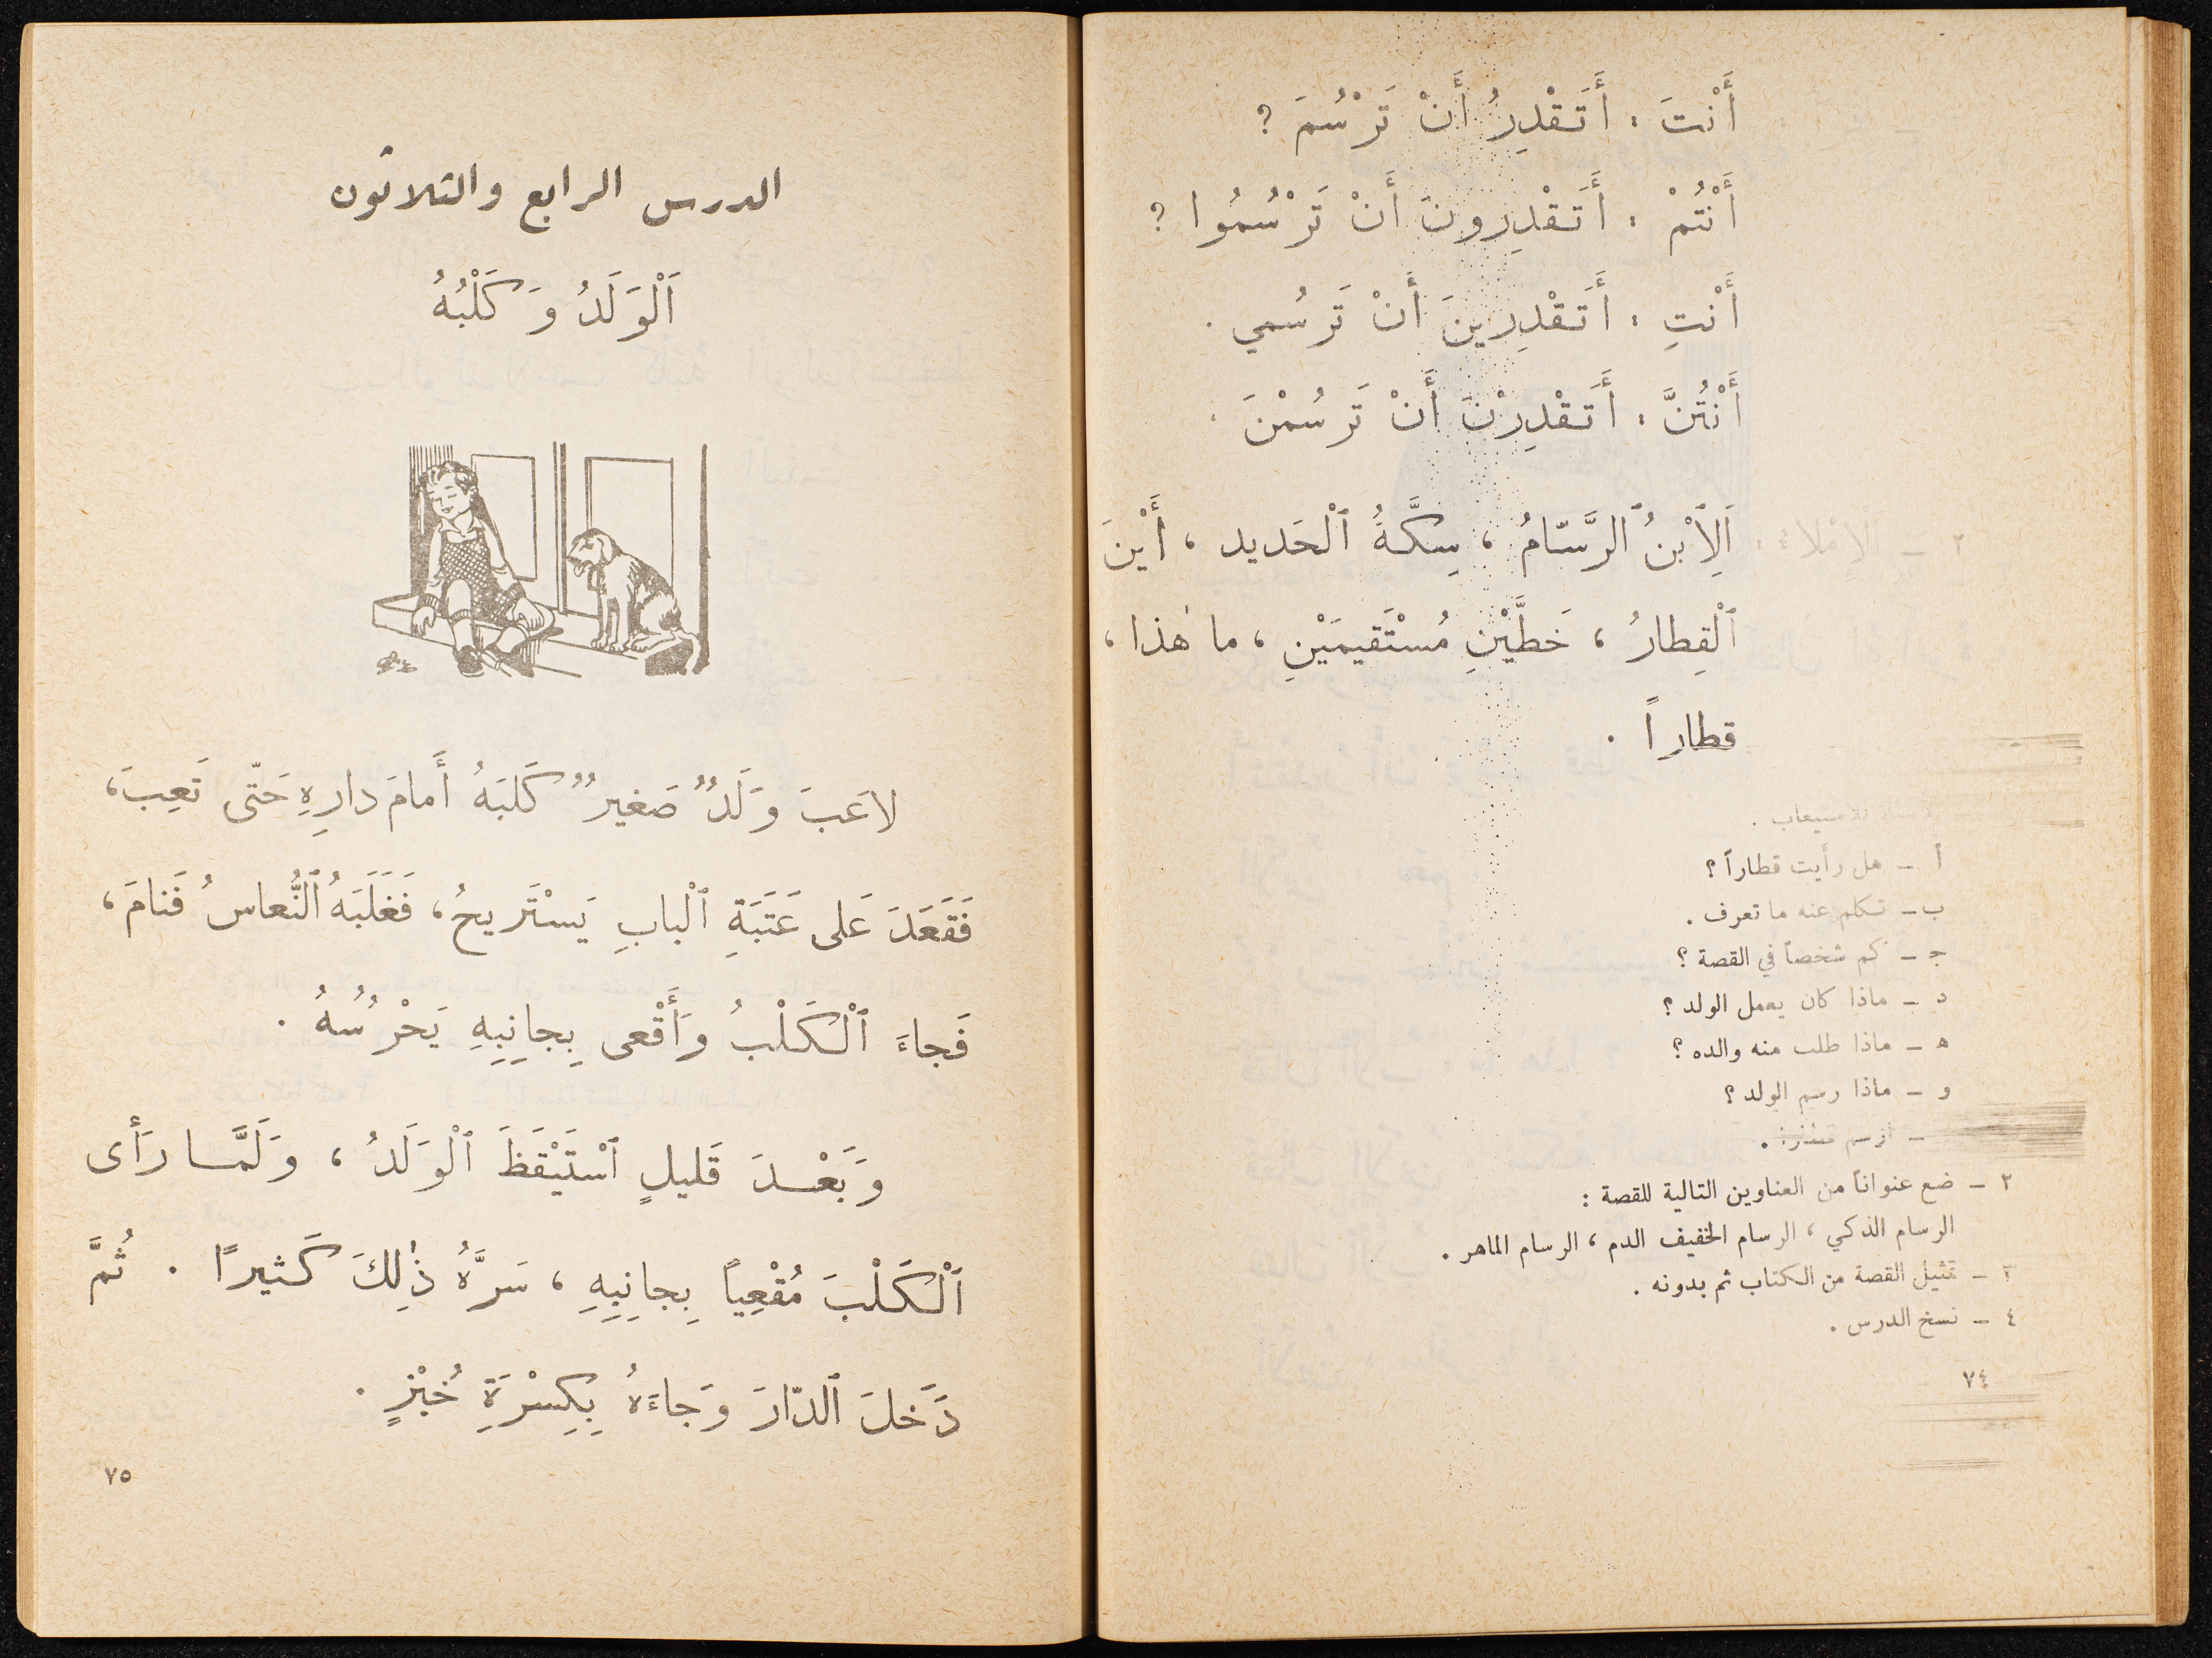 أَنْتَ : أَتَقْدِرُ أَنْ تَرْسُمَ ؟
أَنْتُمْ : أَتَقْدِرونَ أَنْ تَرْسُمُوا ؟
أَنْتِ : أَتَقْدِرينَ أَنْ تَرسُمي .
أَنْتُنَّ : أَتَقْدِرْنَ أَنْ تَرسُمْنَ .
٢ – الإِملاءُ :
اَلِٱبْنُ ٱلرَّسّامُ ، سِكَّةُ ٱلْحَديد ، أَيْنَ
ٱلْقِطارُ ، خَطَّيْنِ مُسْتَقيمَيْنِ ، ما هٰذا ،
قطاراً .
للاستيعاب .
أ – هل رأيت قطاراً ؟
ب – تكلم عنه ما تعرف .
ج – كم شخصاً في القصة ؟
د – ماذا كان يعمل الولد ؟
ه – ماذا طلب منه والده ؟
و – ماذا رسم الولد ؟
– ارسم قطاراً .
٢ – ضع عنواناً من العناوين التالية للقصة :
الرسام الذكي ، الرسام الخفيف الدم ، الرسام الماهر .
٣ – تمثيل القصة من الكتاب ثم بدونه .
٤ – نسخ الدرس .
٧٤
الدرس الرابع والثلاثون
اَلْوَلَدُ وَكَلْبُهُ
لاعَبَ وَلَدٌ صَغيرٌ كَلبَهُ أَمامَ دارِهِ حَتّى تَعِبَ ،
فَقَعَدَ عَلى عَتَبَةِ ٱلْبابِ يَسْتَريحُ ، فَغَلَبَهُ ٱلنُّعاسُ فَنامَ ،
فَجاءَ ٱلْكَلْبُ وَأَقْعى بِجانِبِهِ يَحْرُسُهُ .
وَبَعْدَ قَليلٍ ٱسْتَيْقَظَ ٱلْوَلَدُ ، وَلَمَّا رَأى
اَلْكَلْبَ مُقْعِياً بِجانِبِهِ ، سَرَّهُ ذٰلِكَ كَثيرًا . ثُمَّ
دَخَلَ ٱلدّارَ وَجاءَهُ بِكِسْرَةِ خُبْزٍ .
٧٥